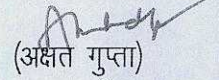 (अक्षत गुप्ता)